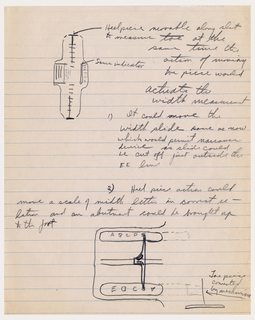 Heel piece movable along slit
to measure toe at the
same time the
action of moving
toe piece would
actuate the
width measurement
Same indicator
1) It could move the
width slide same as now
which would permit narrower
device as slide could
be cut off just outside the
EE line
2) Heel piece action could
move a scale of width letters in correct re-
lation and an abutment would be brought up
to the foot
A B C D E
E D C B
Toe piece
by mechanism